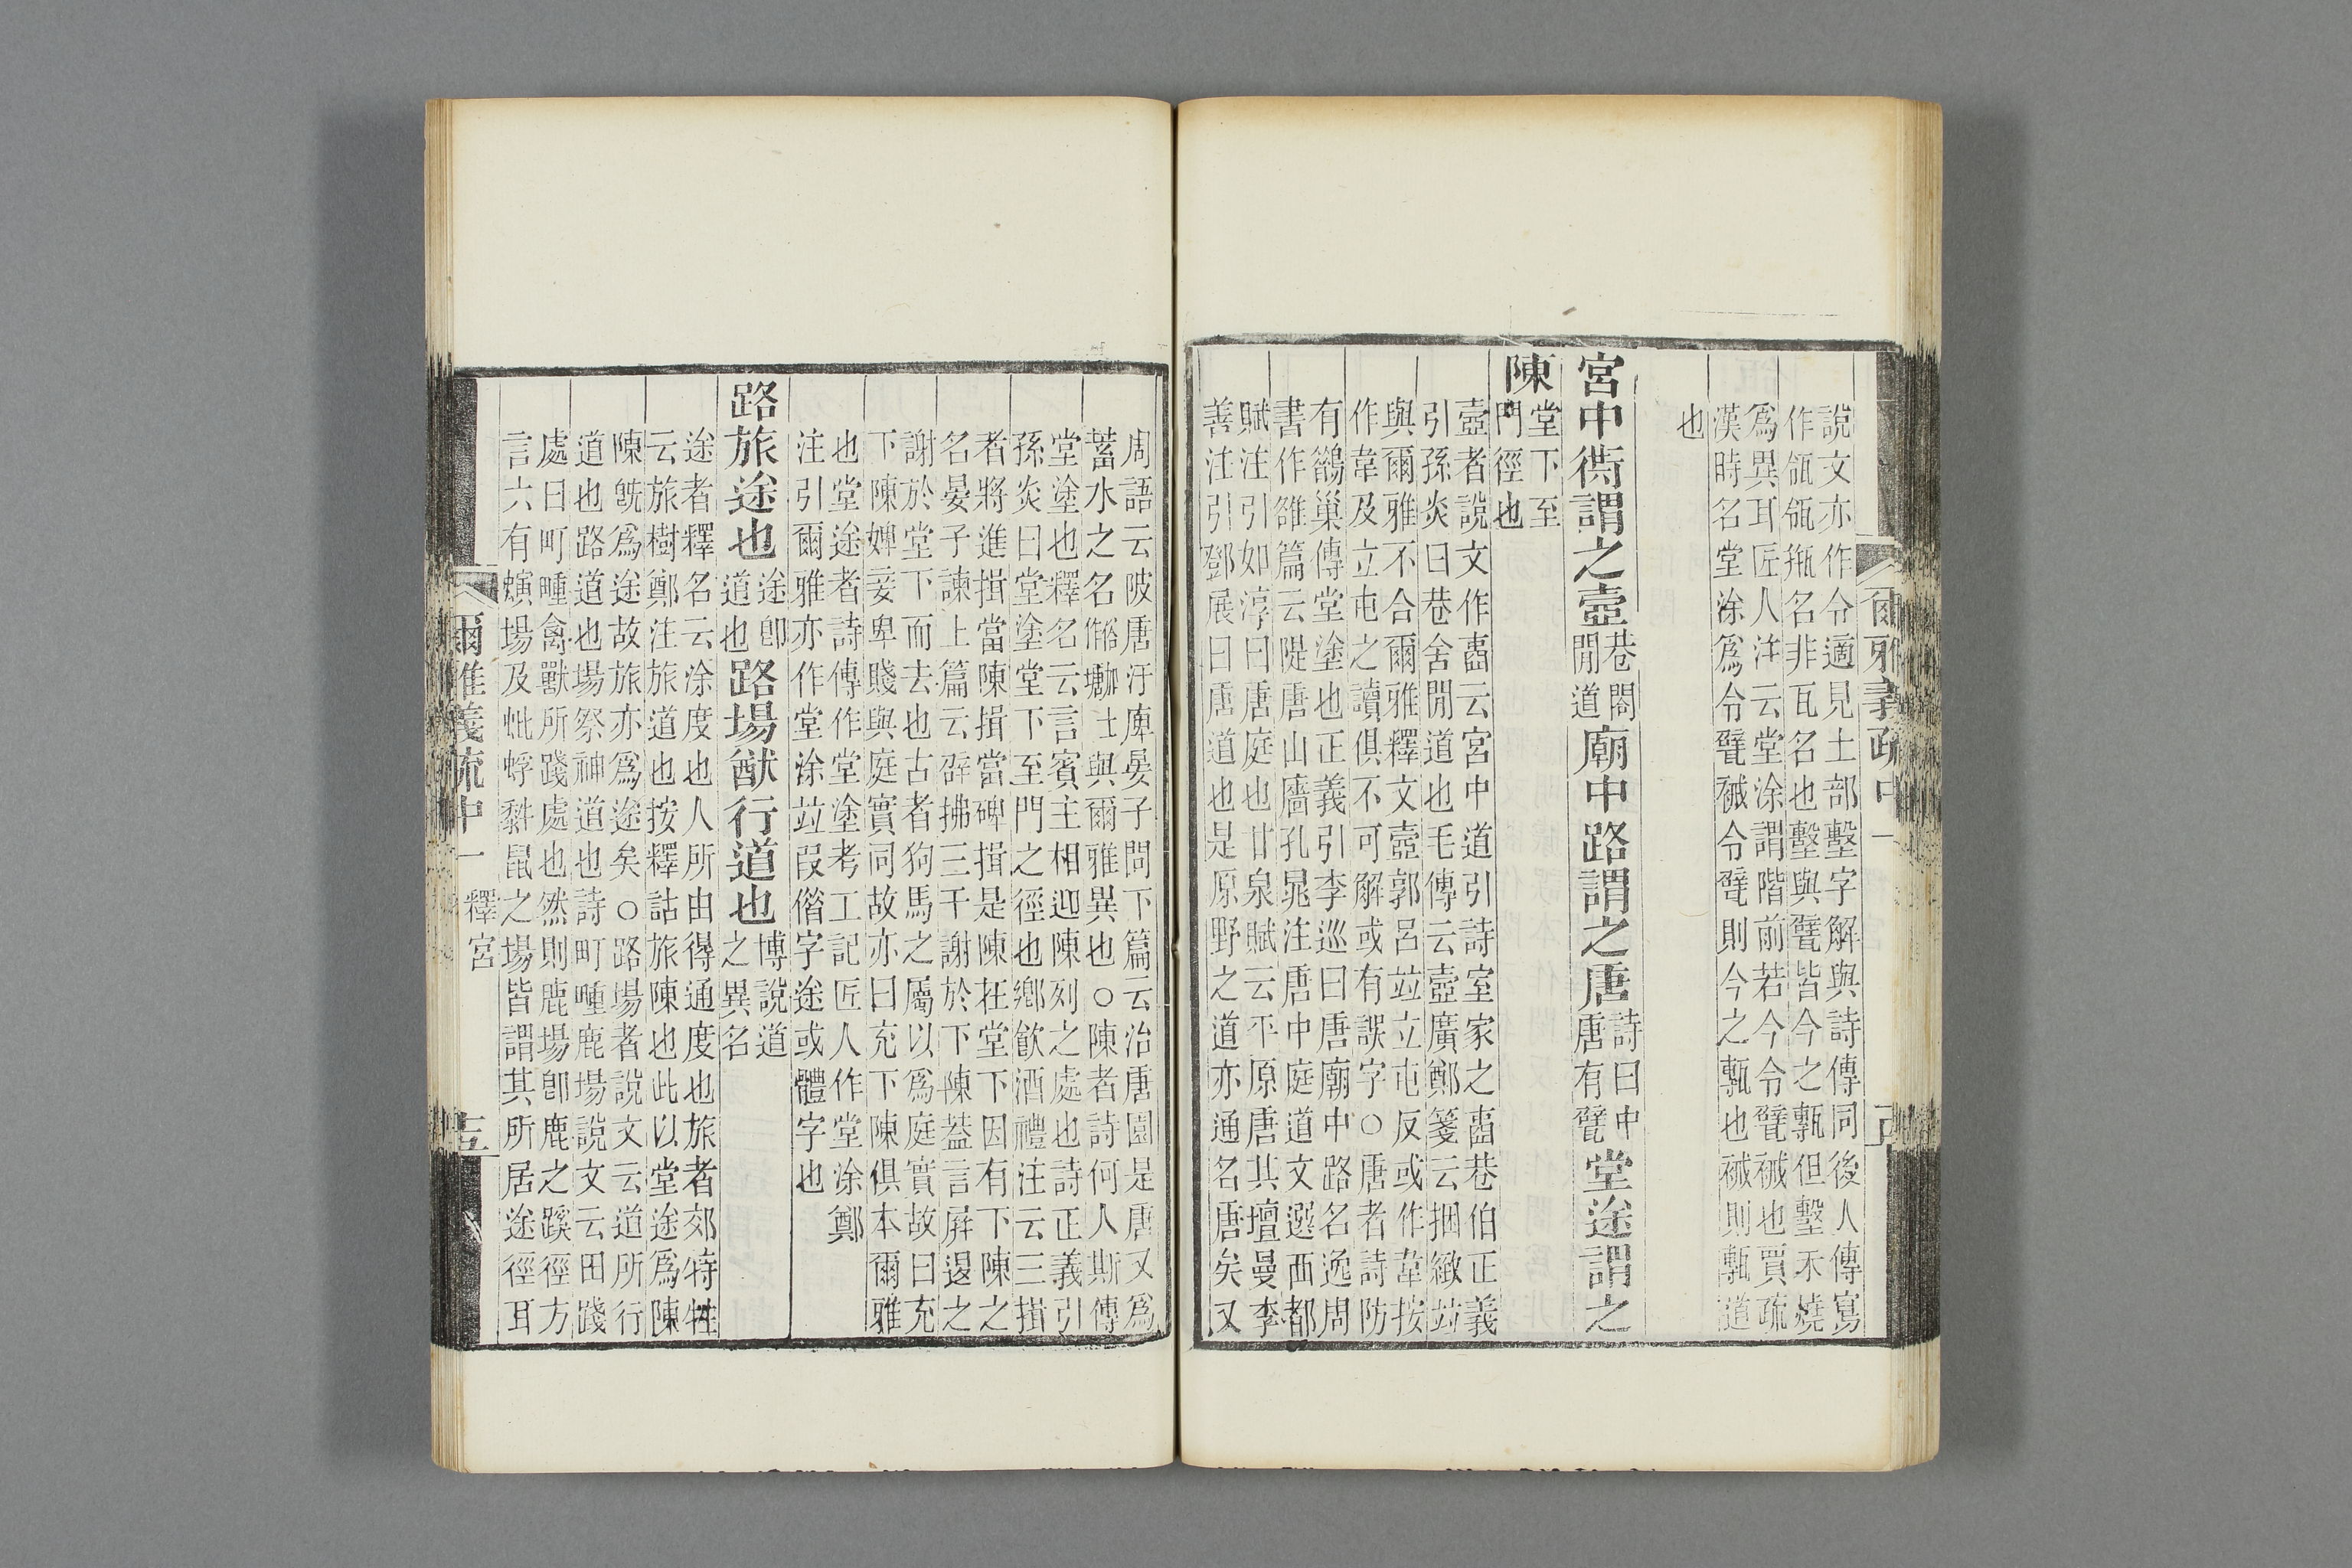 爾雅義疏中一
說文亦作令適見土部墼字解與詩傳同後人傳寫
作瓴瓴㼾名非瓦名也墼與甓皆今之甎但墼未燒
爲異耳匠人注云堂涂謂階前若今令甓裓也賈疏
漢時名堂涂爲令甓裓令甓則今之甎也裓則甎道
也
宮中衖謂之壼巷閤閒道廟中路謂之唐詩曰中唐有甓堂途謂之
陳堂下至門徑也
壼者說文作𡇵云宮中道引詩室家之𡇵巷伯正義
引孫炎曰巷舍閒道也毛傳云壼廣鄭箋云捆緻竝
與爾雅不合爾雅釋文壼郭呂竝立屯反或作韋按
作韋及立屯之讀俱不可解或有誤字○唐者詩防
有鷊巢傳堂塗也正義引李巡曰唐廟中路名逸周
書作雒篇云隄唐山廧孔晁注唐中庭道文選西都
賦注引如淳曰唐庭也甘泉賦云平原唐其壇曼李
善注引鄧展曰唐道也是原野之道亦通名唐矣又
周語云陂唐汙庳晏子問下篇云治唐園是唐又爲
蓄水之名俗作𡑞土與爾雅異也○陳者詩何人斯傳
堂塗也釋名云言賓主相迎陳列之處也詩正義引
孫炎曰堂塗堂下至門之徑也鄕飮酒禮注云三揖
者將進揖當陳揖當碑揖是陳在堂下因有下陳之
名晏子諫上篇云辟拂三千謝於下陳葢言屛退之
謝於堂下而去也古者狗馬之屬以爲庭實故曰充
下陳婢妾卑賤與庭實同故亦曰充下陳俱本爾雅
也堂途者詩傳作堂塗考工記匠人作堂涂鄭
注引爾雅亦作堂涂竝叚偕字途或體字也
路旅途也途卽道也路場猷行道也博說道之異名
途者釋名云涂度也人所由得通度也旅者郊特牲
云旅樹鄭注旅道也按釋詁旅陳也此以堂途爲陳
陳旣爲途故旅亦爲途矣○路場者說文云道所行
道也路道也場祭神道也詩町畽鹿場說文云田踐
處曰町畽禽獸所踐處也然則鹿場卽鹿之蹊徑方
言六有螾場及蚍蜉黺鼠之場皆謂其所居途徑耳
爾雅義疏中一
釋宮